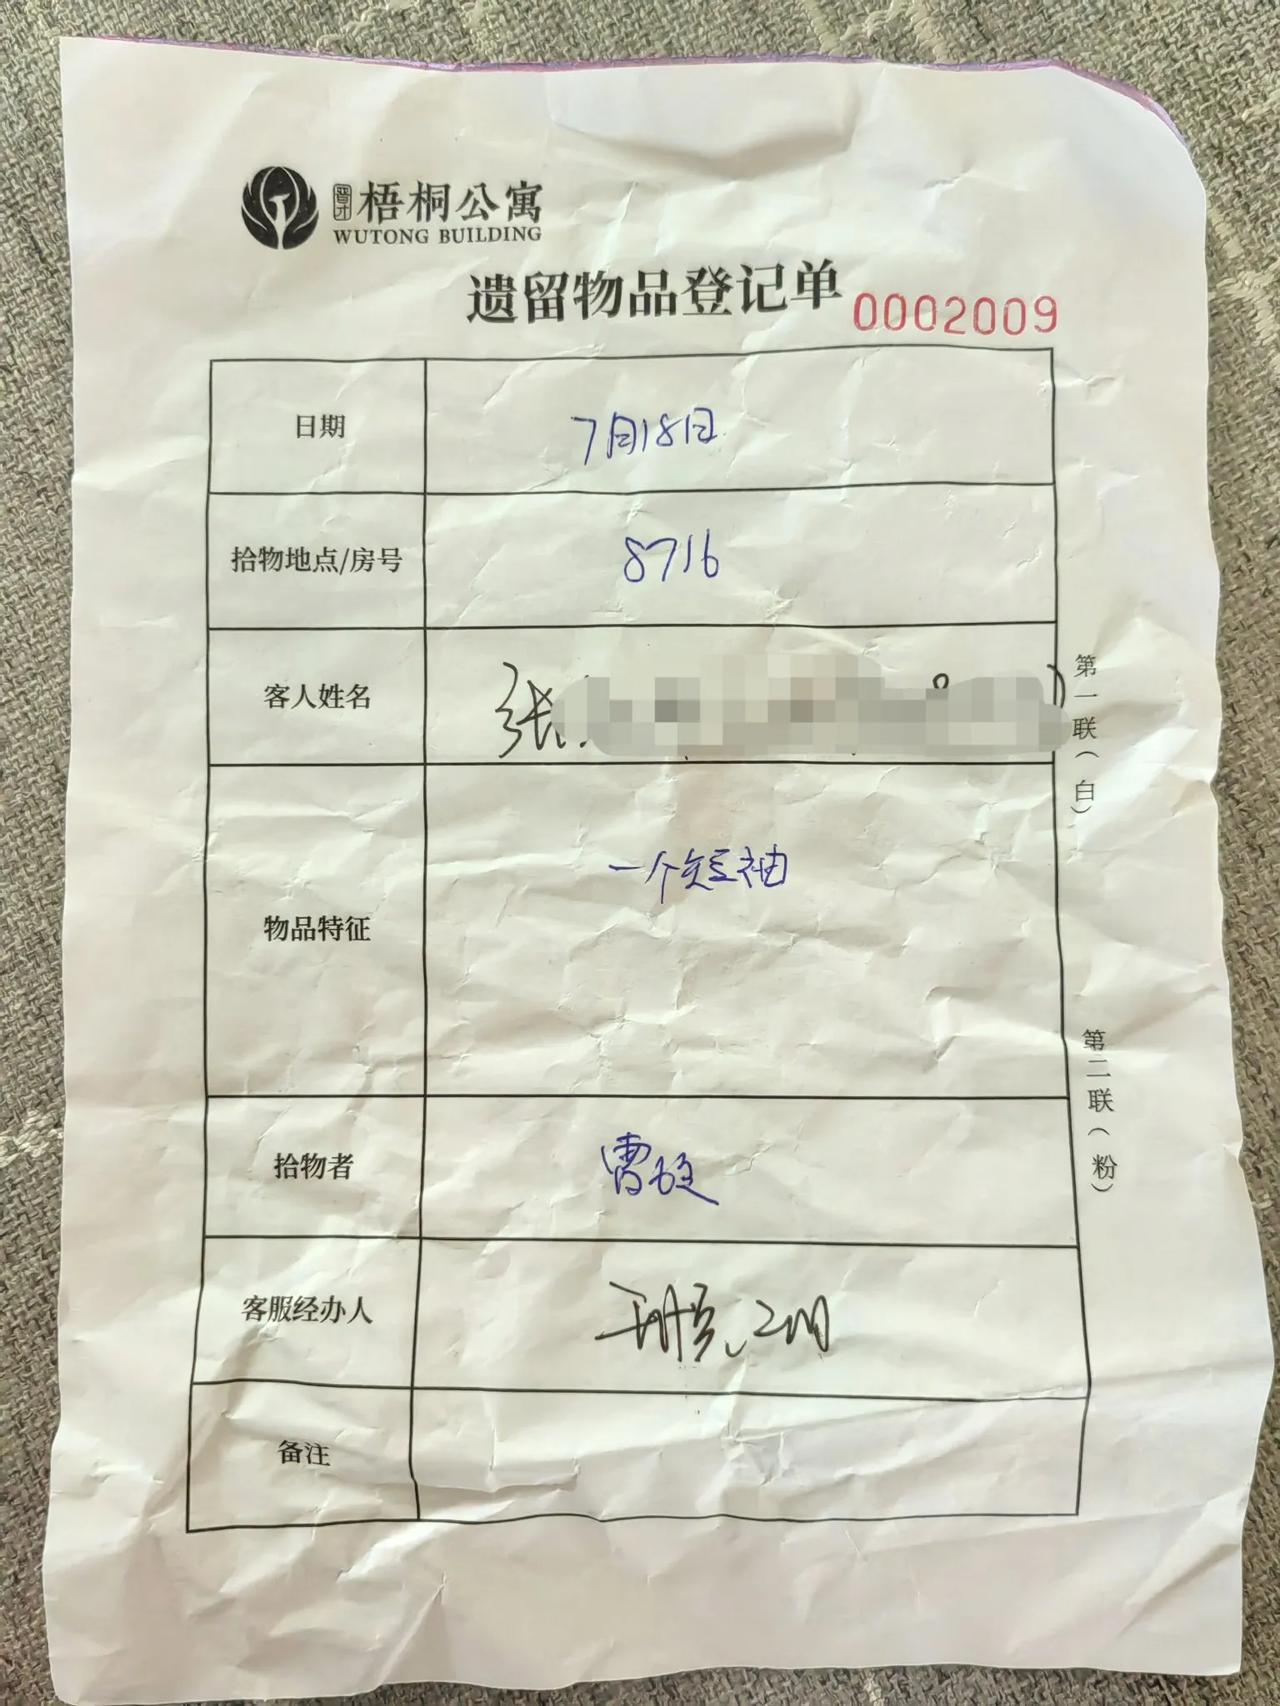 晋才
梧桐公寓
WUTONG BUILDING
遗留物品登记单
0002009
日期
7月18日
拾物地点/房号
8716
客人姓名
张
物品特征
一个短袖
拾物者
曹
客服经办人
备注
第一联(白)
第二联(粉)